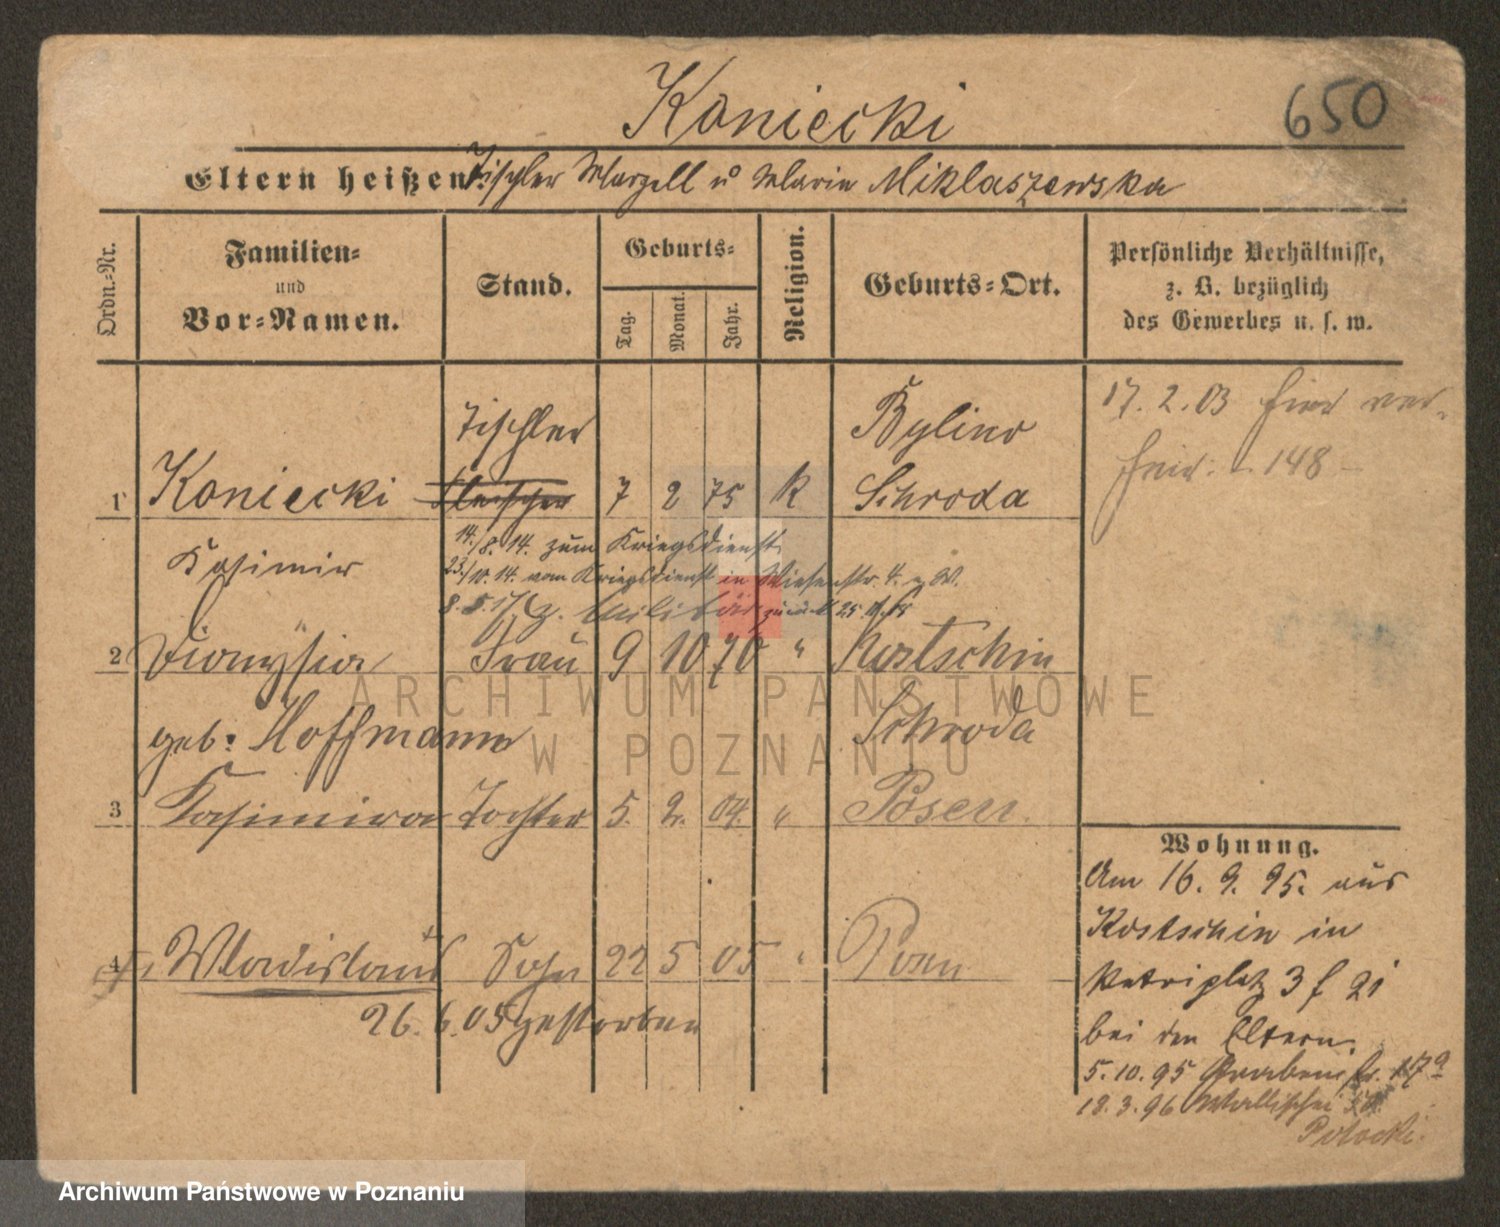 Koniecki
650
Eltern heißen: Tischler Marzell u Marie Miklaszewska
Ordn.-Nr.
Familien-
und
Vor-Namen.
Stand.
Geburts-
Tag.
Monat.
Jahr.
Religion.
Geburts-Ort.
Persönliche Verhältnisse,
z. B. bezüglich
des Gewerbes u. s. w.
17. 2. 03 hier ver-
heir. 148
Tischler
Bylino
1 Koniecki Fleischer 7 2 75 K Schroda
Kasimir
14./8. 14. zum Kriegsdienst
23./10. 14. vom Kriegsdienst in Wiesenstr. 4. W.
8. 5. 17 z. Militär zurück 25 11. 18
2 Dionysia Frau 9 10 76 " Kostschin
geb: Hoffmann Schroda
3 Kasimira Tochter 5. 2. 04. " Posen.
4 Wladislaus Sohn 22 5 05 " Posen
26. 6. 05 gestorben
Wohnung.
Am 16. 9. 95. aus
Kostschin in
Petriplatz 3 f 21
bei den Eltern.
5. 10. 95 Grabenstr. 17a
18. 3. 96 Wallischei
Potocki.
ARCHIWUM PAŃSTWOWE
W POZNANIU
Archiwum Państwowe w Poznaniu